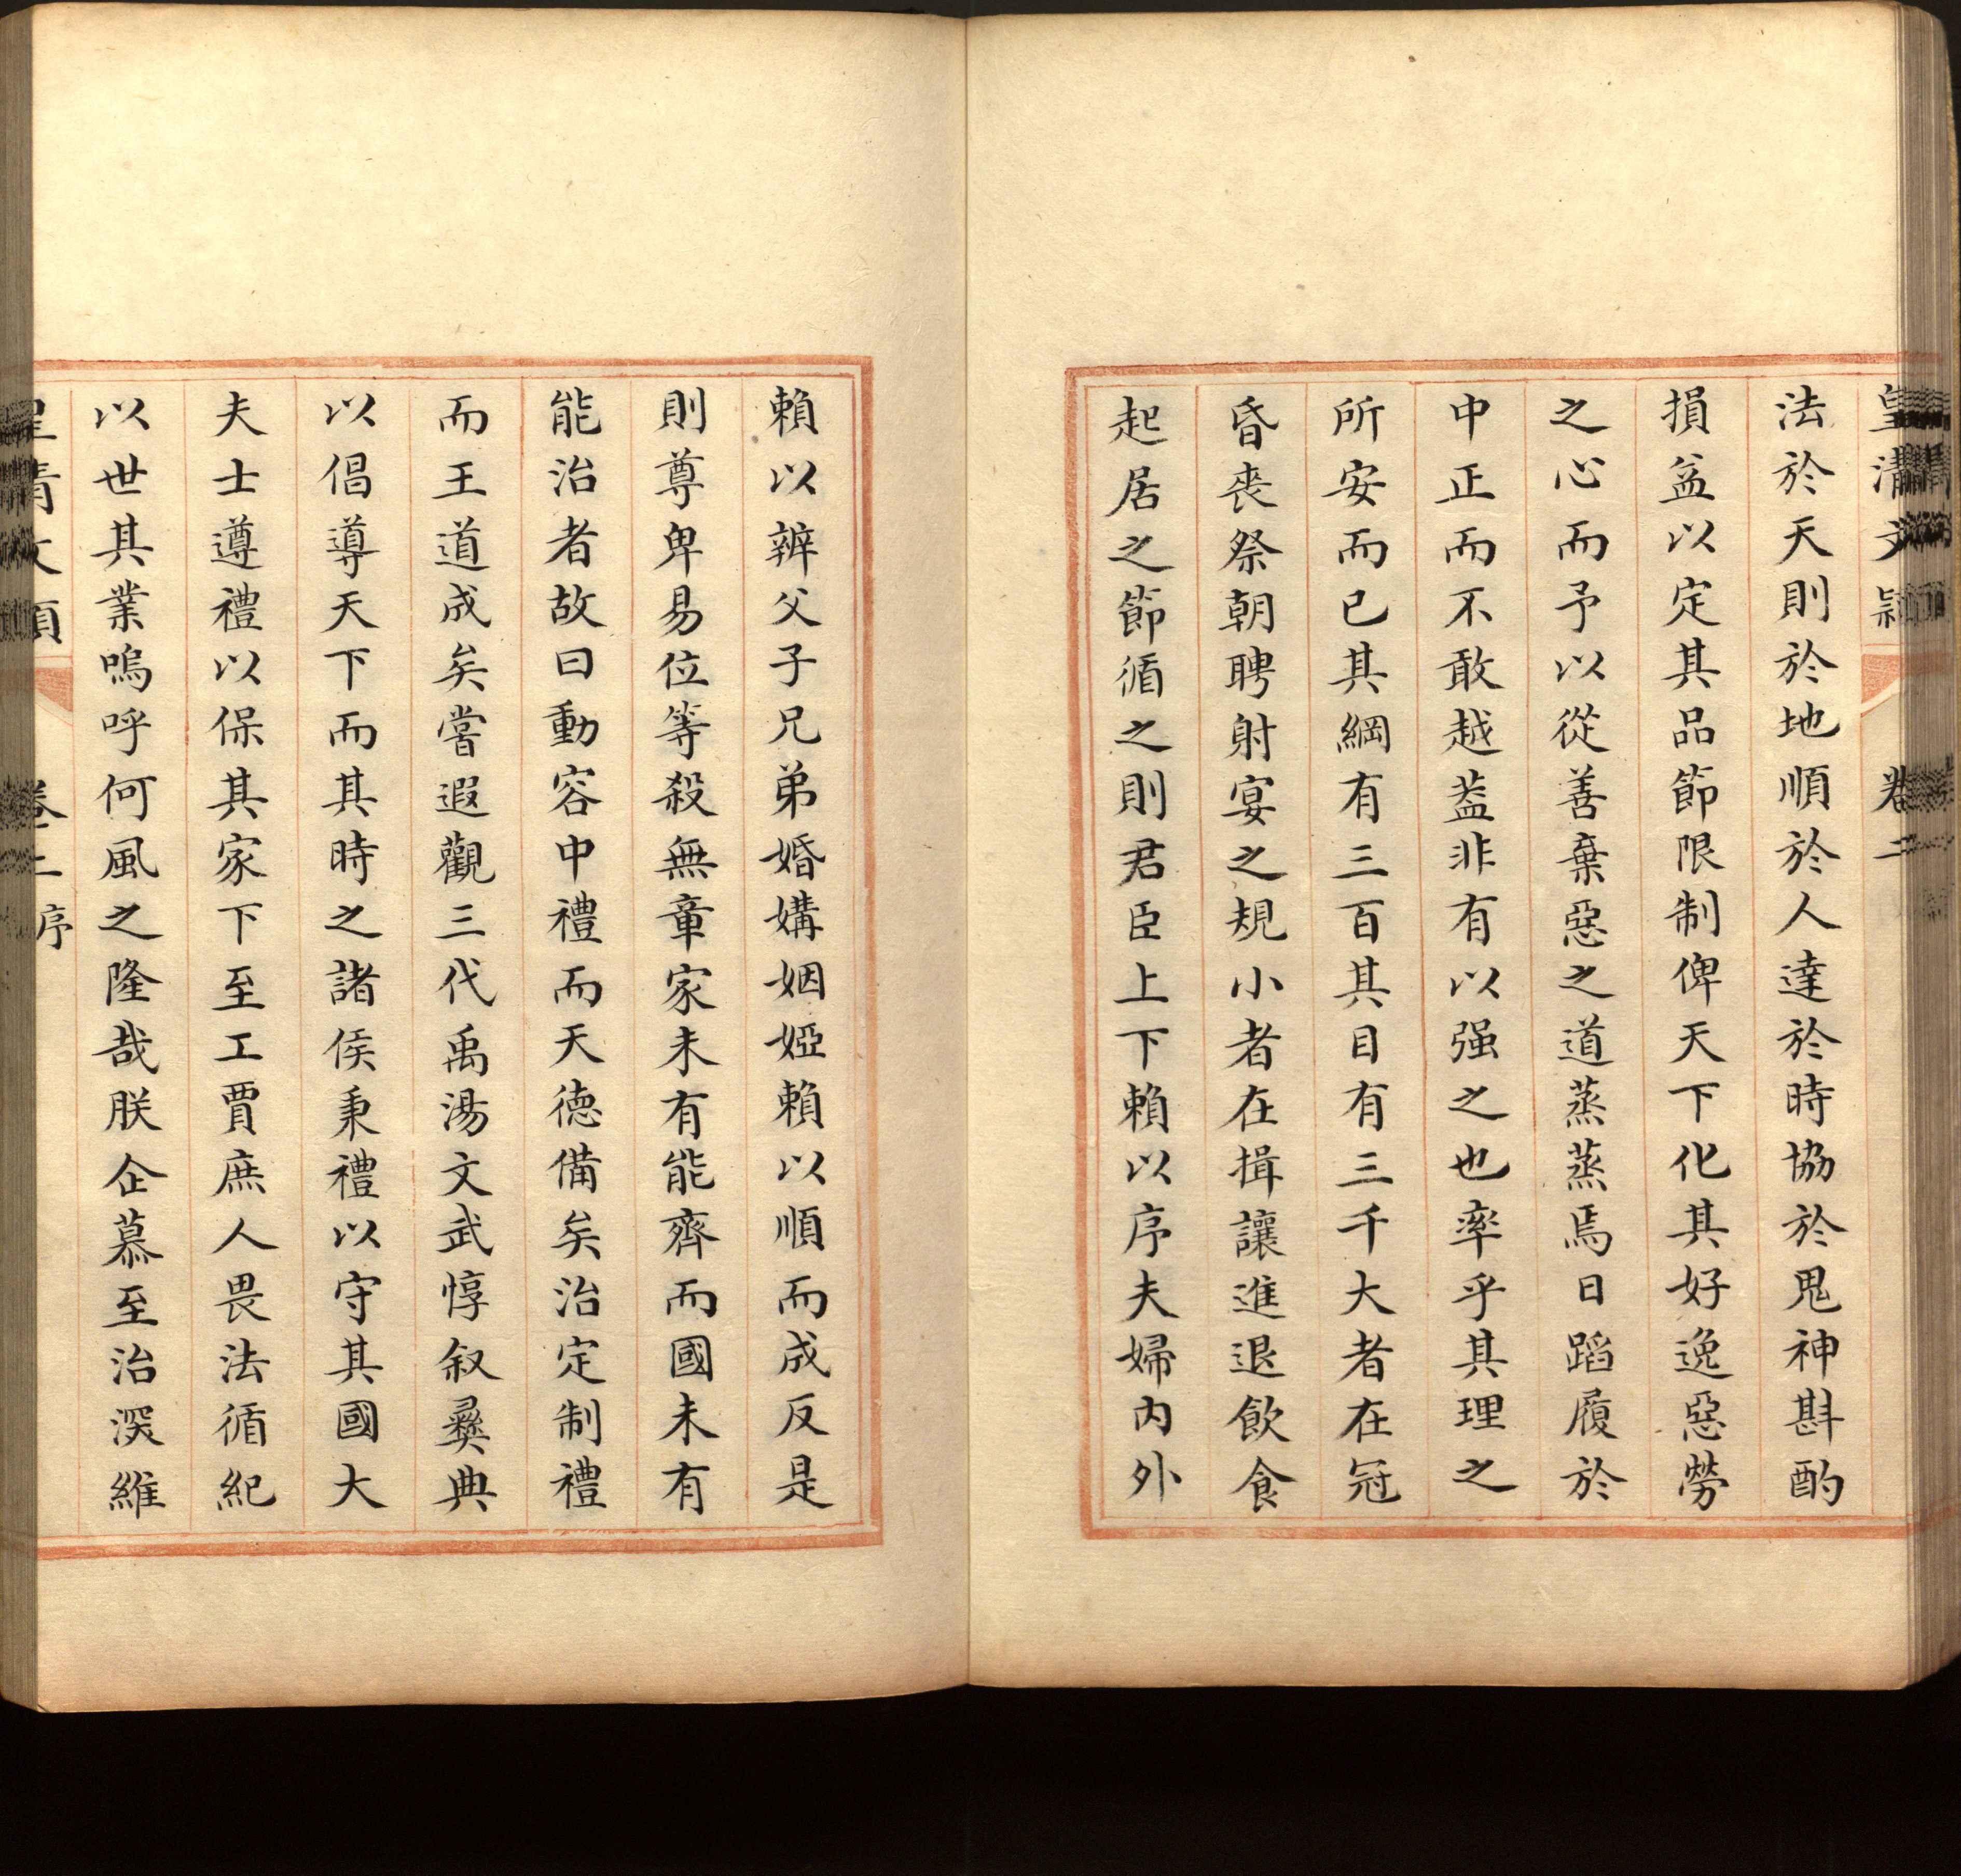 皇清文穎　卷二
法於天則於地順於人達於時協於鬼神斟酌
損益以定其品節限制俾天下化其好逸惡勞
之心而予以從善棄惡之道蒸蒸焉日蹈履於
中正而不敢越葢非有以强之也率乎其理之
所安而已其綱有三百其目有三千大者在冠
昏喪祭朝聘射宴之規小者在揖讓進退飲食
起居之節循之則君臣上下賴以序夫婦內外
賴以辨父子兄弟婚媾姻婭賴以順而成反是
則尊卑易位等殺無章家未有能齊而國未有
能治者故曰動容中禮而天德備矣治定制禮
而王道成矣嘗遐觀三代禹湯文武惇叙彝典
以倡導天下而其時之諸侯秉禮以守其國大
夫士遵禮以保其家下至工賈庶人畏法循紀
以世其業嗚呼何風之隆哉朕企慕至治深維
皇清文穎　卷二　序